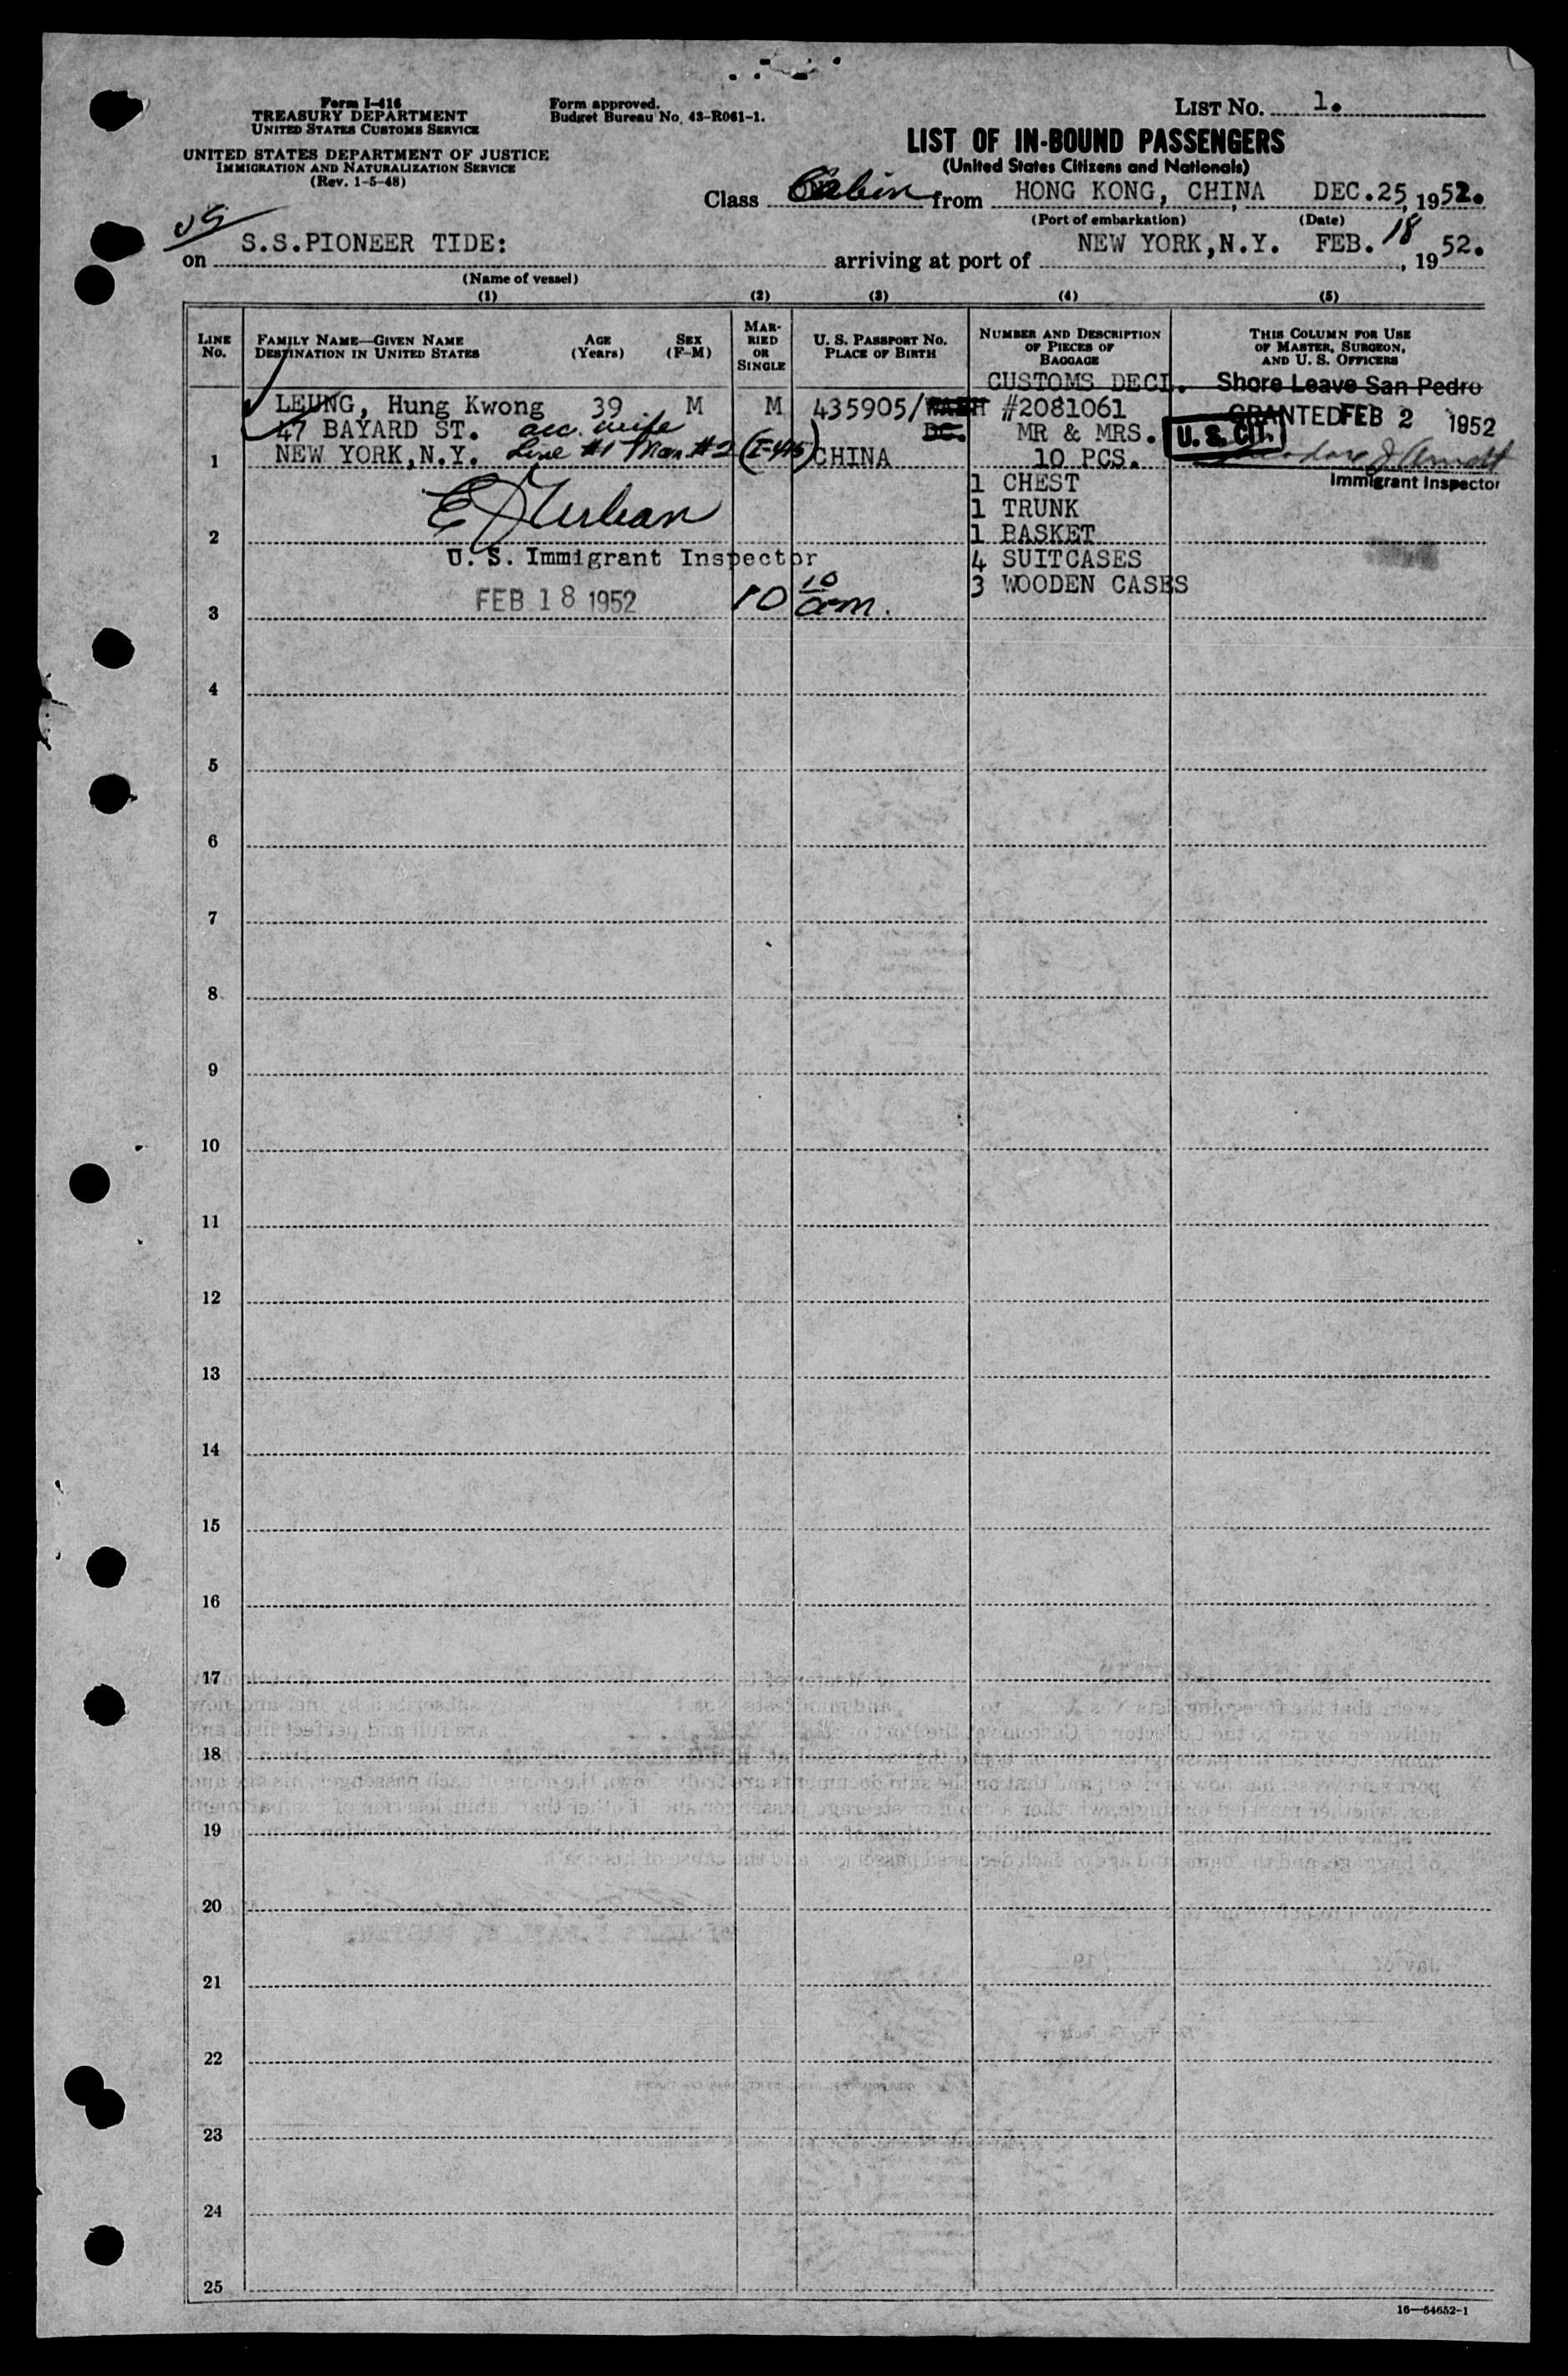 Form I-416
TREASURY DEPARTMENT
UNITED STATES CUSTOMS SERVICE
UNITED STATES DEPARTMENT OF JUSTICE
IMMIGRATION AND NATURALIZATION SERVICE
(Rev. 1-5-48)
Form approved.
Budget Bureau No. 43-R061-1.
LIST No. 1.
LIST OF IN-BOUND PASSENGERS
(United States Citizens and Nationals)
Class Cabin from HONG KONG, CHINA, DEC.25, 1952.
(Port of embarkation) (Date)
on S.S.PIONEER TIDE: arriving at port of NEW YORK,N.Y. FEB. 18, 1952.
(Name of vessel)
(1) (2) (3) (4) (5)
LINE No.
FAMILY NAME—GIVEN NAME
DESTINATION IN UNITED STATES
AGE (Years)
SEX (F-M)
MARRIED OR SINGLE
U. S. PASSPORT No.
PLACE OF BIRTH
NUMBER AND DESCRIPTION OF PIECES OF BAGGAGE
THIS COLUMN FOR USE OF MASTER, SURGEON, AND U. S. OFFICERS
CUSTOMS DECL. Shore Leave San Pedro
LEUNG, Hung Kwong 39 M M 435905/WASH #2081061 GRANTED FEB 2 1952
47 BAYARD ST. acc. wife DC. MR & MRS. U. S. CIT.
1 NEW YORK,N.Y. Line #1 Man. #2 (I-415) CHINA 10 PCS.
Immigrant Inspector
1 CHEST
1 TRUNK
2 1 BASKET
U. S. Immigrant Inspector 4 SUITCASES
FEB 18 1952 10 10 am. 3 WOODEN CASES
3
4
5
6
7
8
9
10
11
12
13
14
15
16
17
18
19
20
21
22
23
24
25
16—54652-1